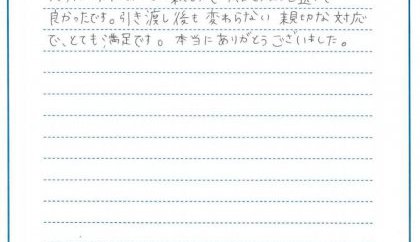 良かったです。引き渡し後も変わらない親切な対応
で、とても満足です。本当にありがとうございました。